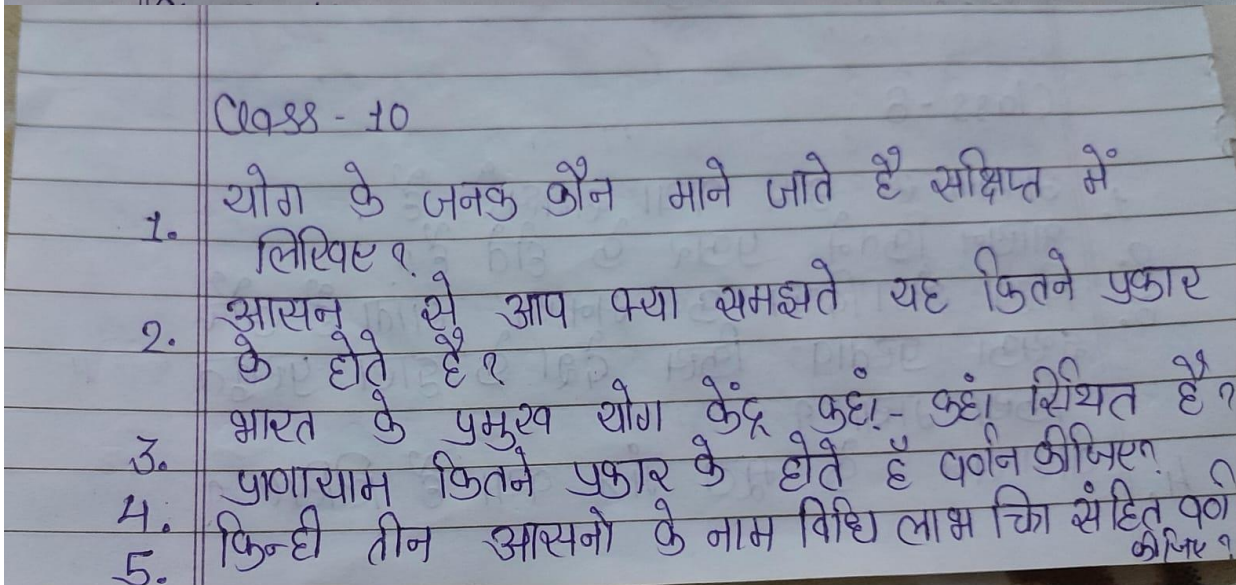 Class - 10
1. योग के जनक कौन माने जाते है सक्षिप्त में
लिखिए ?
2. आसन से आप क्या समझते यह कितने प्रकार
के होते है ?
3. भारत के प्रमुख योग केंद्र कहां - कहां स्थित है ?
4. प्राणायाम कितने प्रकार के होते है वर्णन कीजिए ?
5. किन्ही तीन आसनो के नाम विधि लाभ चित्र संहित वर्ण
कीजिए ?